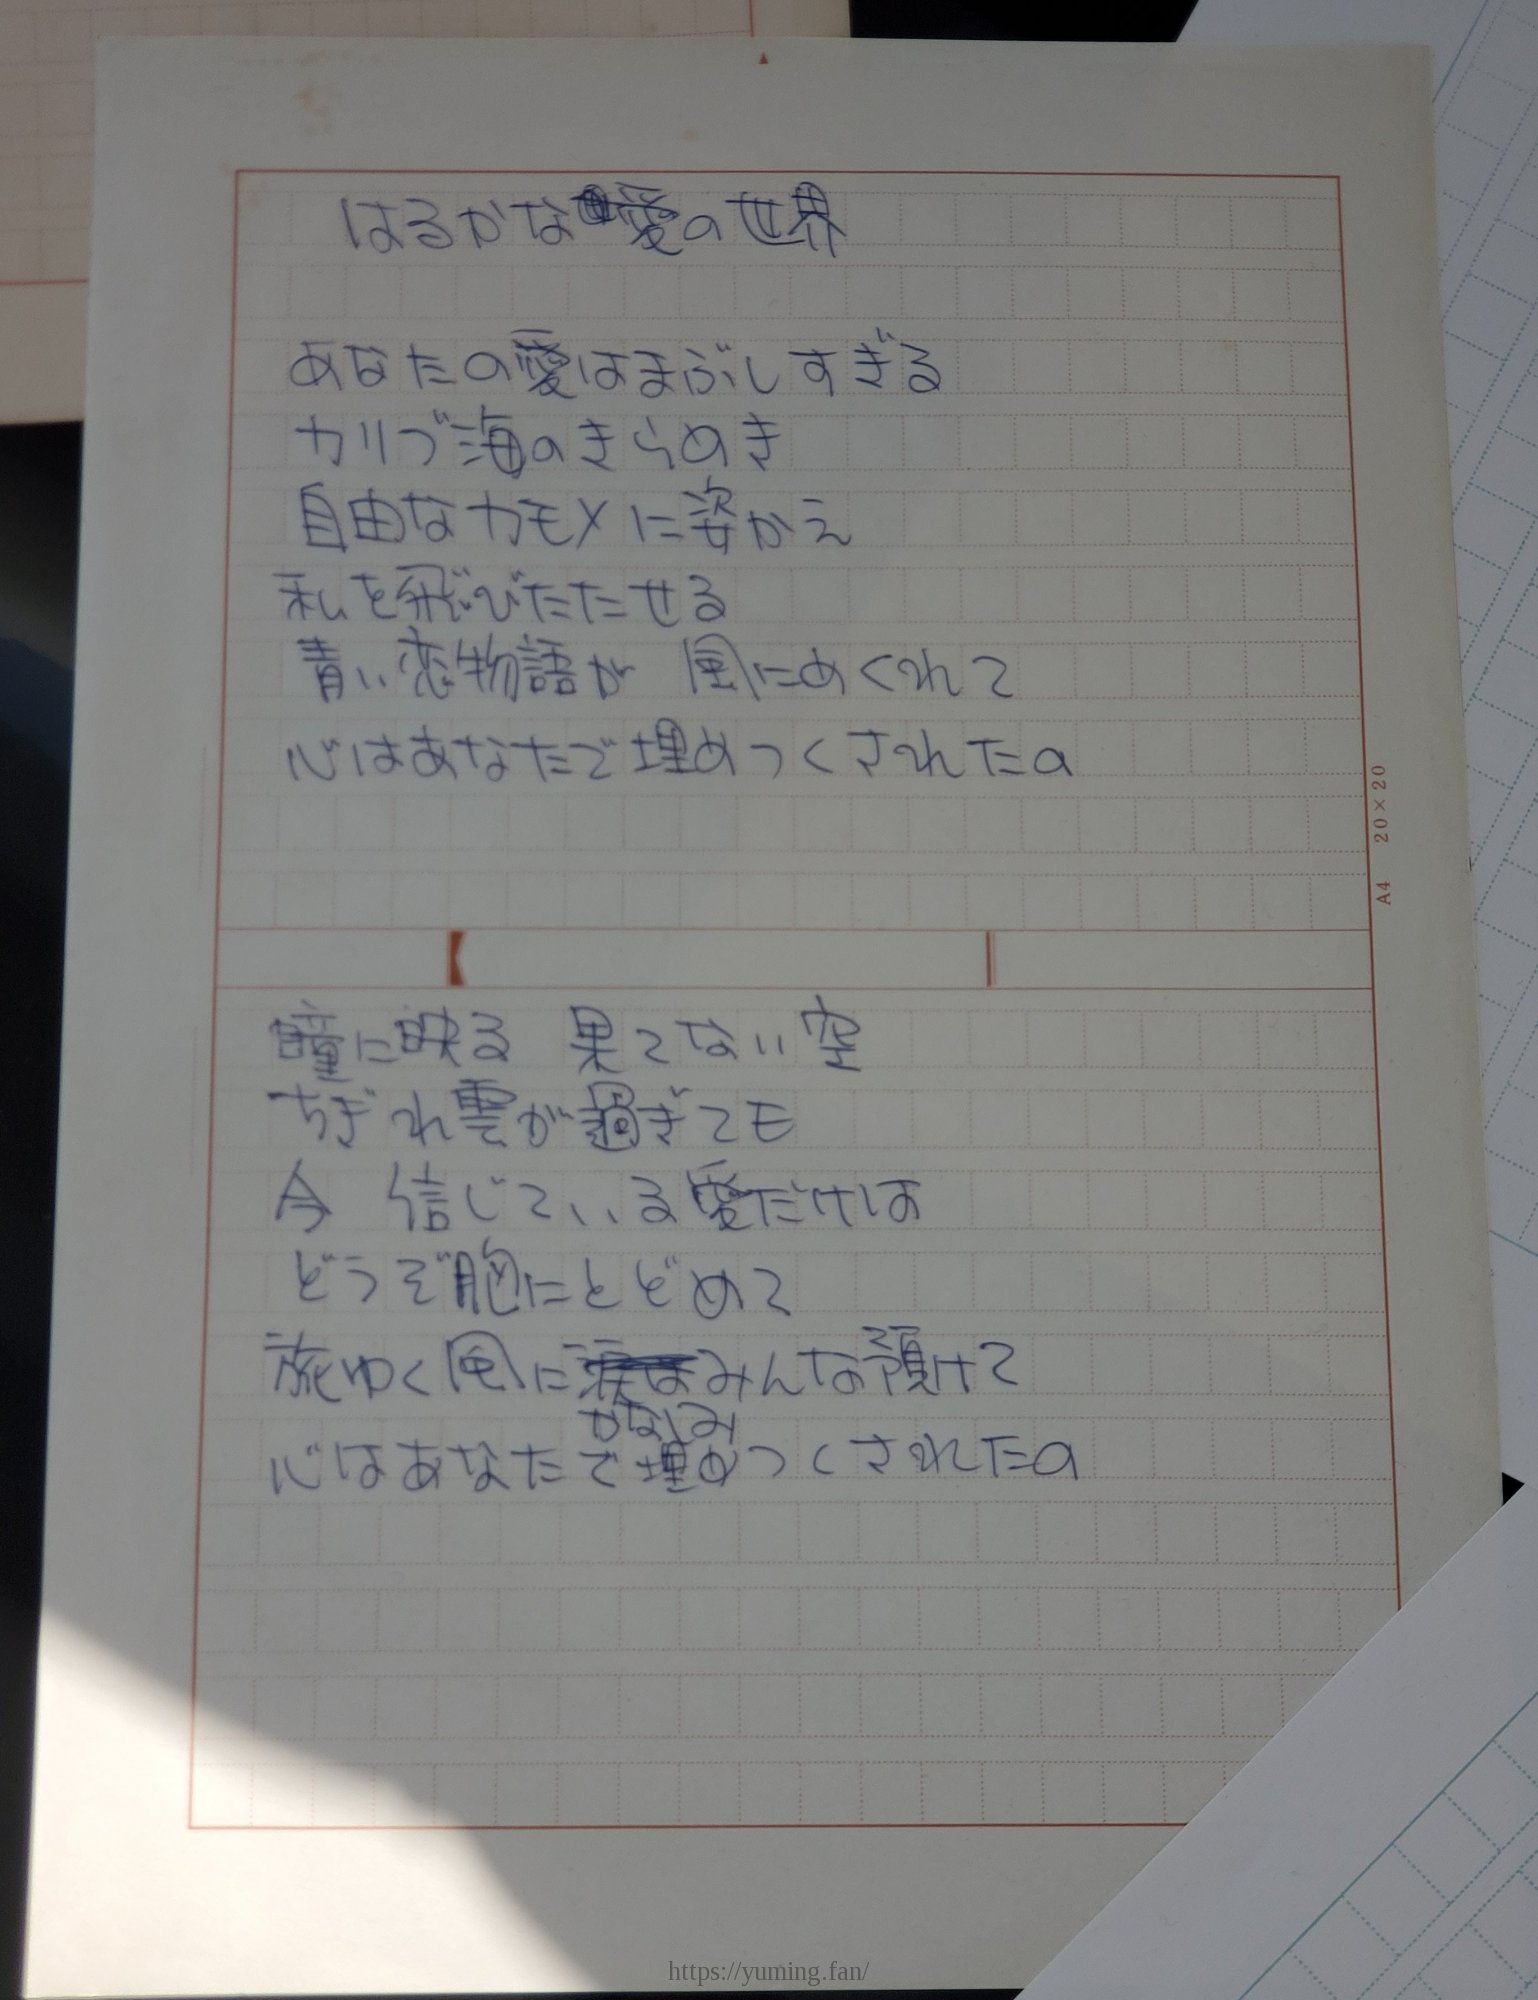 はるかな愛の世界
あなたの愛はまぶしすぎる
カリブ海のきらめき
自由なカモメに姿かえ
私を飛びたたせる
青い恋物語が 風にめくれて
心はあなたで埋めつくされたの
A4 20×20
瞳に映る 果てない空
ちぎれ雲が過ぎても
今 信じている愛だけは
どうぞ胸にとどめて
旅ゆく風に涙はみんな預けて
かなしみ
心はあなたで埋めつくされたの
https://yuming.fan/